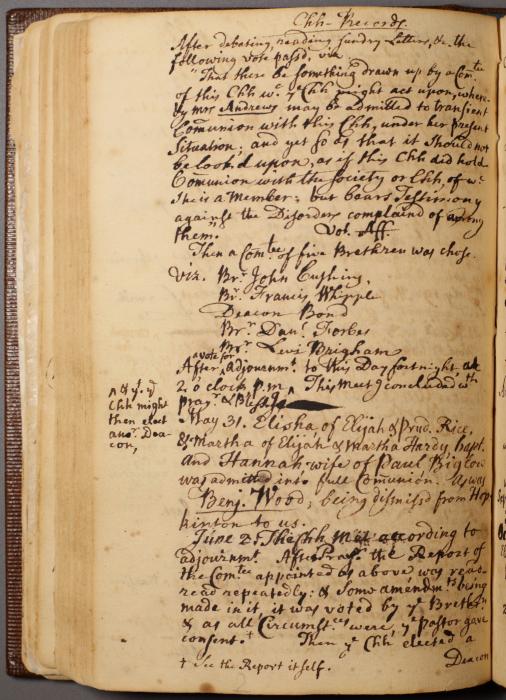 Chh- Records.
After debating, reading sundry Letters, &c. the
following vote passd, viz.
"That there be something drawn up by a Comtee
of this Chh wc. ye Chh might act upon, where-
by mrs Andrews may be admitted to transient
Communion with this Chh, under her present
Situation; and yet so as that it should not
be look'd upon, as if this Chh did hold
Communion with the Society or Chh, of wc.
She is a Member; but bears Testimony
against the Disorders complaind of among
them." Vot. Aff.
Then a Comtee of five Brethren was chose.
Viz. Br. John Cushing,
Br. Francis Whipple
Deacon Bond
Brr. Danl. Forbes
Brr Levi Brigham
vote for
After Adjournmt. to this Day fortnight, at
2 o clock p.m ^ This Meetg concluded with
prayr & Blessg
^ & yt. ye
Chh might
then elect
anor. Dea-
con,
May 31. Elisha of Elijah & Prud. Rice,
& Martha of Elijah & Martha Hardy, bapt.
And Hannah, wife of Paul Biglow
was admitted into full Comunion. As was
Benj. Wood, being dismissd from Hop-
kinton to us.
June 2. The Chh met according to
adjournmt. After Prayr. the Report of
the Comtee appointed as above was read
read repeatedly: & some amendmts being
made in it, it was voted by ye Brethrn
& as all Circumstces were, ye pastor gave
consent.† Then ye Chh elected a
† See the Report itself. Deacon